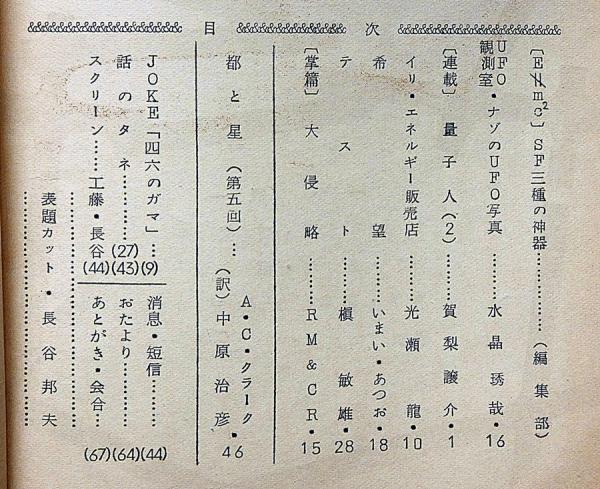 目次
〔E𝈒mc²〕SF三種の神器…………（編集部）
UFO観測室・ナゾのUFO写真………水晶琇哉・16
〔連載〕量子人（2）………賀梨譲介・1
イリ・エネルギー販売店………光瀬龍・10
希望………いまい・あつお・18
テスト………槇敏雄・28
〔掌篇〕大侵略………RM&CR・15
都と星（第五回）…A・C・クラーク・
（訳）中原治彦・46
JOKE「四六のガマ」…(9)
話のタネ………(27)(43)
スクリーン……工藤・長谷(44)
消息・短信………(44)
おたより………(64)
あとがき・会合…(67)
表題カット・長谷邦夫